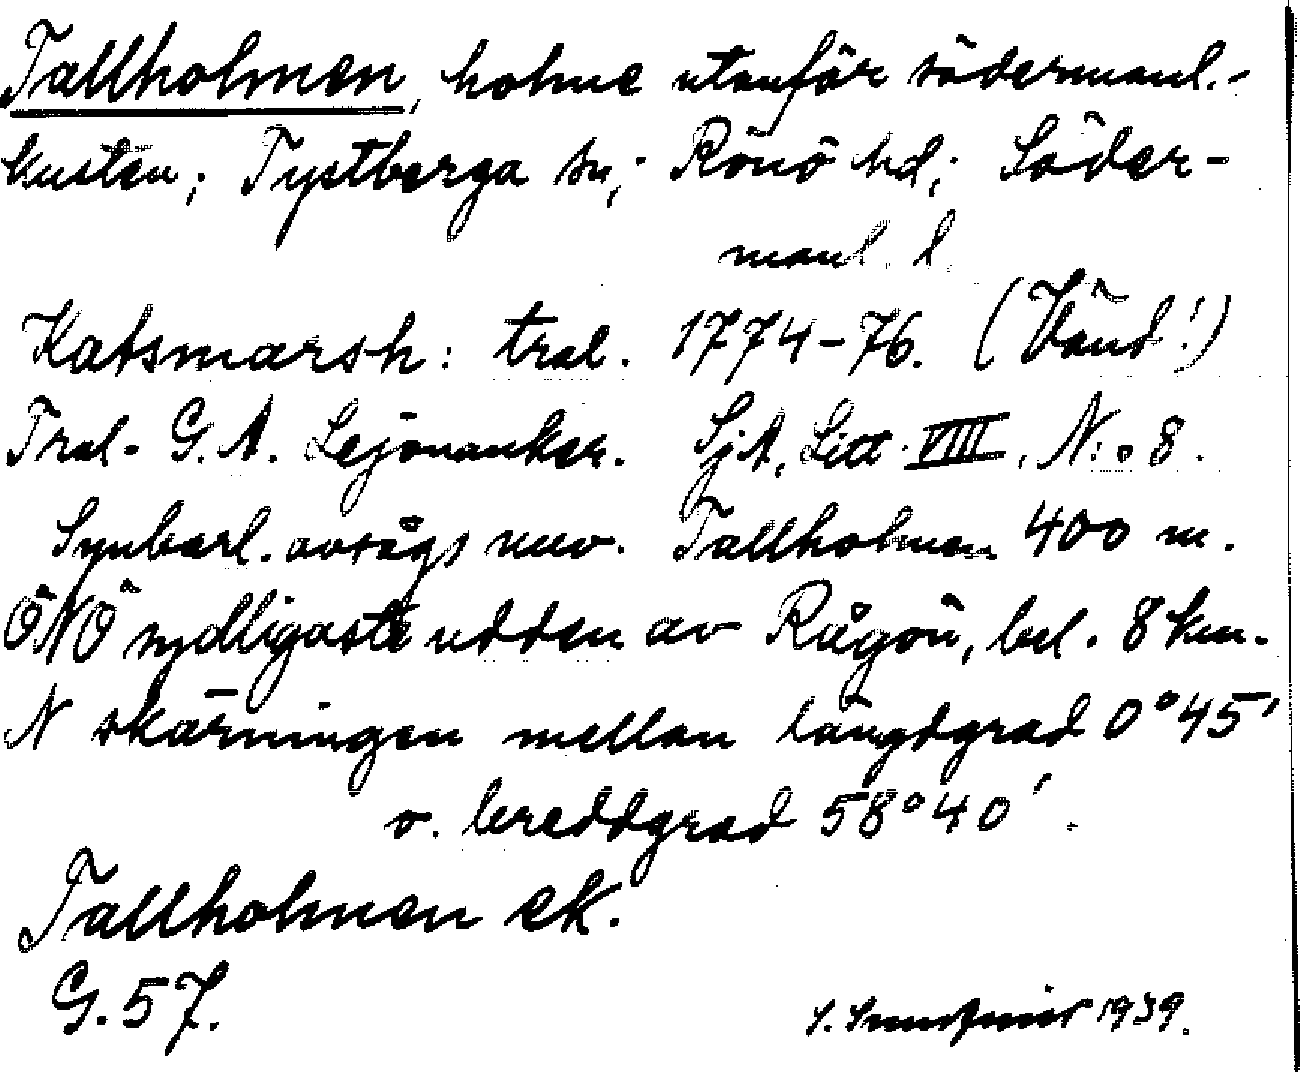 Tallholmen, holme utanför södermanl.-
kusten; Tystberga sn; Rönö hd; Söder-
manl. l.
Katsmarsh: tral. 1774-76. (Vänd!)
Tral. G. A. Lejonanker. SjA, Litt. VIII, N:o 8.
Synbarl. avsågs nuv. Tallholmen 400 m.
ÖNÖ sydligaste udden av Rågön, bel. 8 km.
N skärningen mellan längdgrad 0°45'
o. breddgrad 58°40'.
Tallholmen ek.
G. 57.
1939.